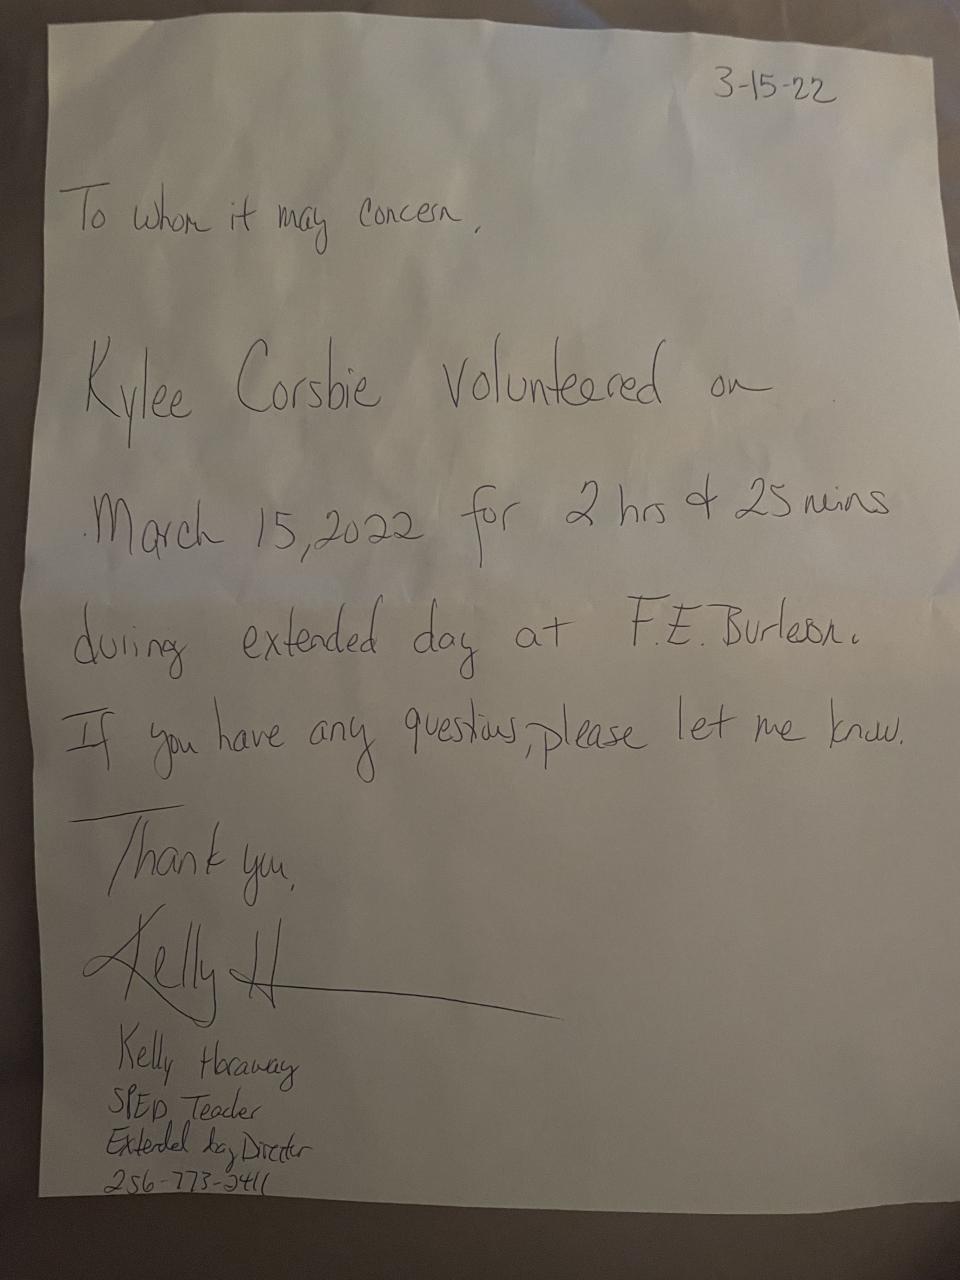 3-15-22
To whom it may concern,
Kylee Corsbie volunteered on
March 15, 2022 for 2 hrs & 25 mins
during extended day at F.E. Burleson.
If you have any questions, please let me know.
Thank you,
Kelly H
Kelly Haraway
SPED Teacher
Extended day Director
256-773-2411